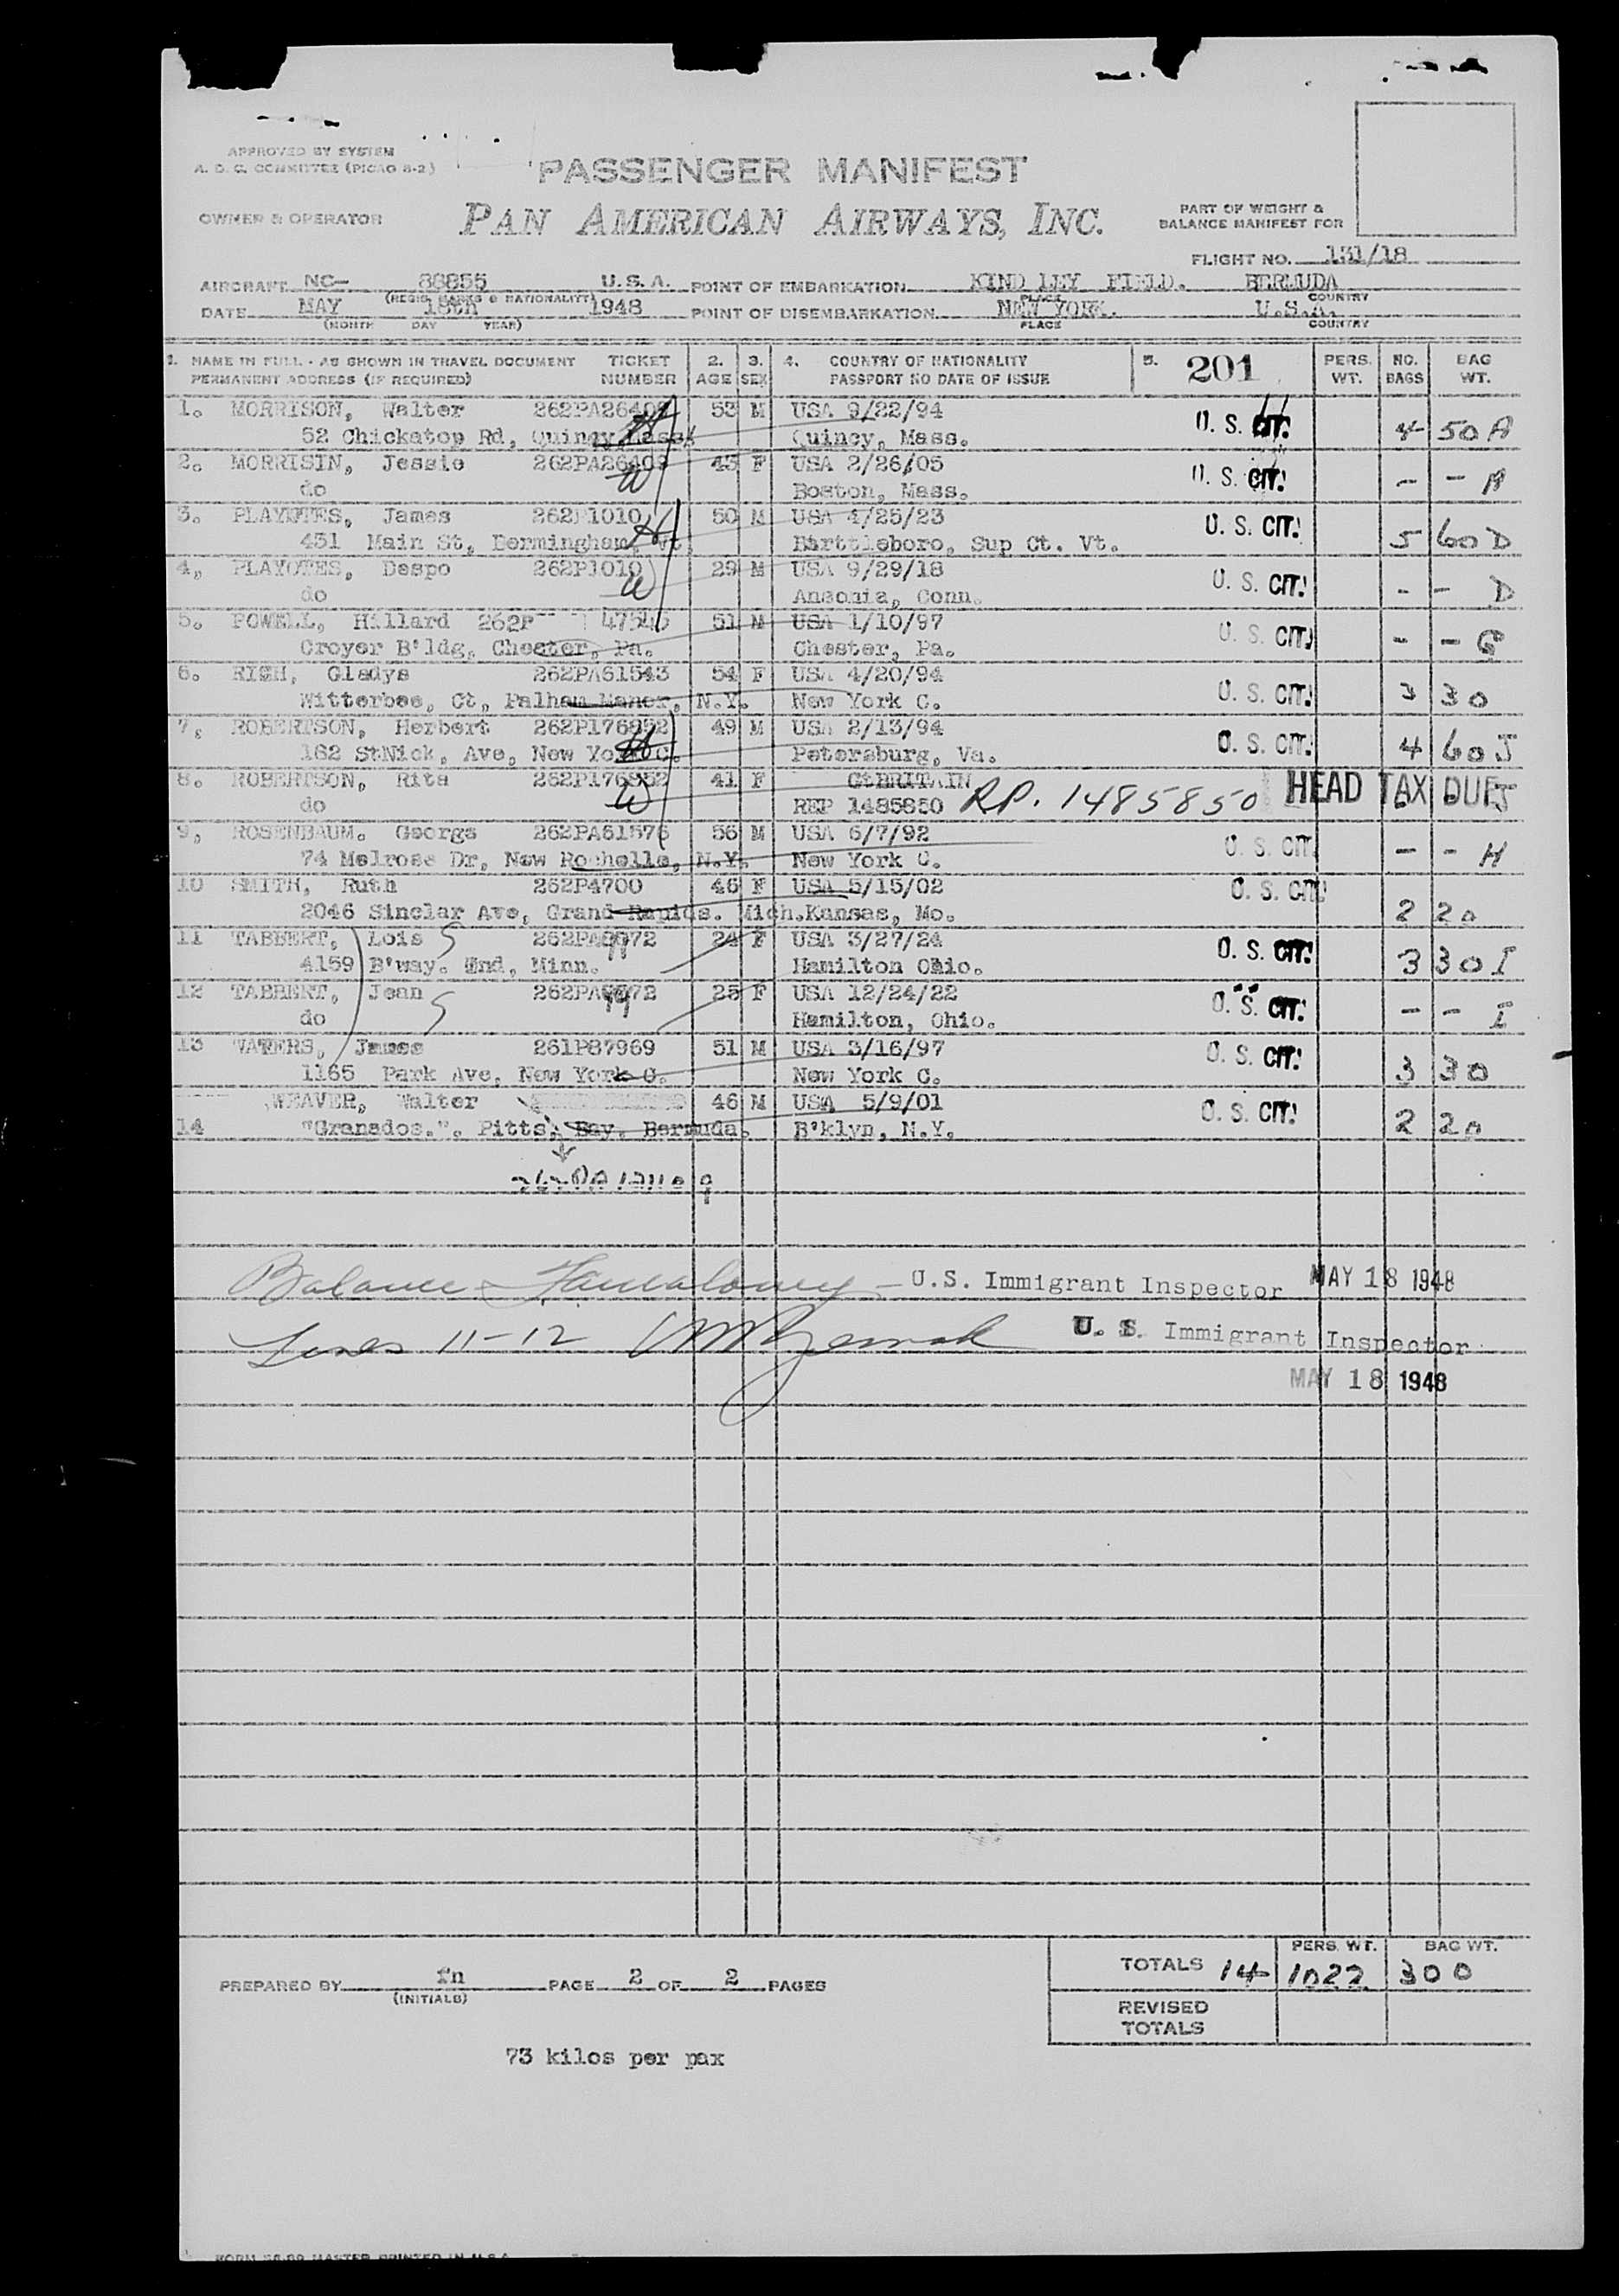 APPROVED BY SYSTEM
A. D. C. COMMITTEE (PICAO 8-2)
PASSENGER MANIFEST
OWNER & OPERATOR
PAN AMERICAN AIRWAYS, INC.
PART OF WEIGHT &
BALANCE MANIFEST FOR
FLIGHT NO. 131/18
AIRCRAFT NC- 88855 U.S.A. POINT OF EMBARKATION KINDLEY FIELD. BERMUDA
(REGIS. MARKS & NATIONALITY) PLACE COUNTRY
DATE MAY 18th 1948 POINT OF DISEMBARKATION NEW YORK. U.S.A.
(MONTH DAY YEAR) PLACE COUNTRY
1. NAME IN FULL - AS SHOWN IN TRAVEL DOCUMENT TICKET 2. 3. 4. COUNTRY OF NATIONALITY 5. 201 PERS. NO. BAG
PERMANENT ADDRESS (IF REQUIRED) NUMBER AGE SEX PASSPORT NO DATE OF ISSUE WT. BAGS WT.
1. MORRISON, Walter 53 M USA 9/22/94 U. S. CIT.
52 Chickatop Rd, Quincy, Mass. Quincy, Mass. 4 50 A
2. MORRISIN, Jessie 43 F USA 2/26/05 U. S. CIT.
do Boston, Mass. - - A
3. PLAYOTES, James 262P1010 50 M USA 4/25/23 U. S. CIT.
451 Main St, Bermingham, Vt. Barttleboro, Sup Ct. Vt. 5 60 D
4, PLAYOTES, Despo 262P1010 29 M USA 9/29/18 U. S. CIT.
do Ansonia, Conn. - - D
5. POWELL, Hillard 262P 51 M USA 1/10/97 U. S. CIT.
Croyer B'ldg, Chester, Pa. Chester, Pa. - - G
6. RICH, Gladys 262PA61543 54 F USA 4/20/94 U. S. CIT.
Witterbee, Ct, Palham Manor, N.Y. New York C. 3 30
7, ROBERTSON, Herbert 262P176852 49 M USA 2/13/94 U. S. CIT.
162 StNick, Ave, New York C. Petersburg, Va. 4 60 J
8. ROBERTSON, Rita 262P176852 41 F GtBRITAIN HEAD TAX DUE
do REP 1485850 RP. 1485850 - - J
9, ROSENBAUM. George 262PA61576 56 M USA 6/7/92 U. S. CIT.
74 Melrose Dr, New Rochelle, N.Y. New York C. - - H
10 SMITH, Ruth 262P4700 46 F USA 5/15/02 U. S. CIT.
2046 Sinclar Ave, Grand Rapids. Mich. Kansas, Mo. 2 20
11 TABBERT, Lois 24 F USA 3/27/24 U. S. CIT.
4159 B'way. Ind, Minn. Hamilton Ohio. 3 30 I
12 TABBERT, Jean 25 F USA 12/24/22 U. S. CIT.
do Hamilton, Ohio. - - I
13 WATERS, James 261P87969 51 M USA 3/16/97 U. S. CIT.
1165 Park Ave, New York C. New York C. 3 30
WEAVER, Walter 46 M USA 5/9/01 U. S. CIT.
14 "Granados.". Pitts, Bay. Bermuda. B'klyn, N.Y. 2 20
Balance - U.S. Immigrant Inspector MAY 18 1948
Lines 11-12 U. S. Immigrant Inspector
MAY 18 1948
PERS. WT. BAG WT.
TOTALS 14 1022 300
PREPARED BY fn PAGE 2 OF 2 PAGES
(INITIALS)
REVISED
TOTALS
73 kilos per pax